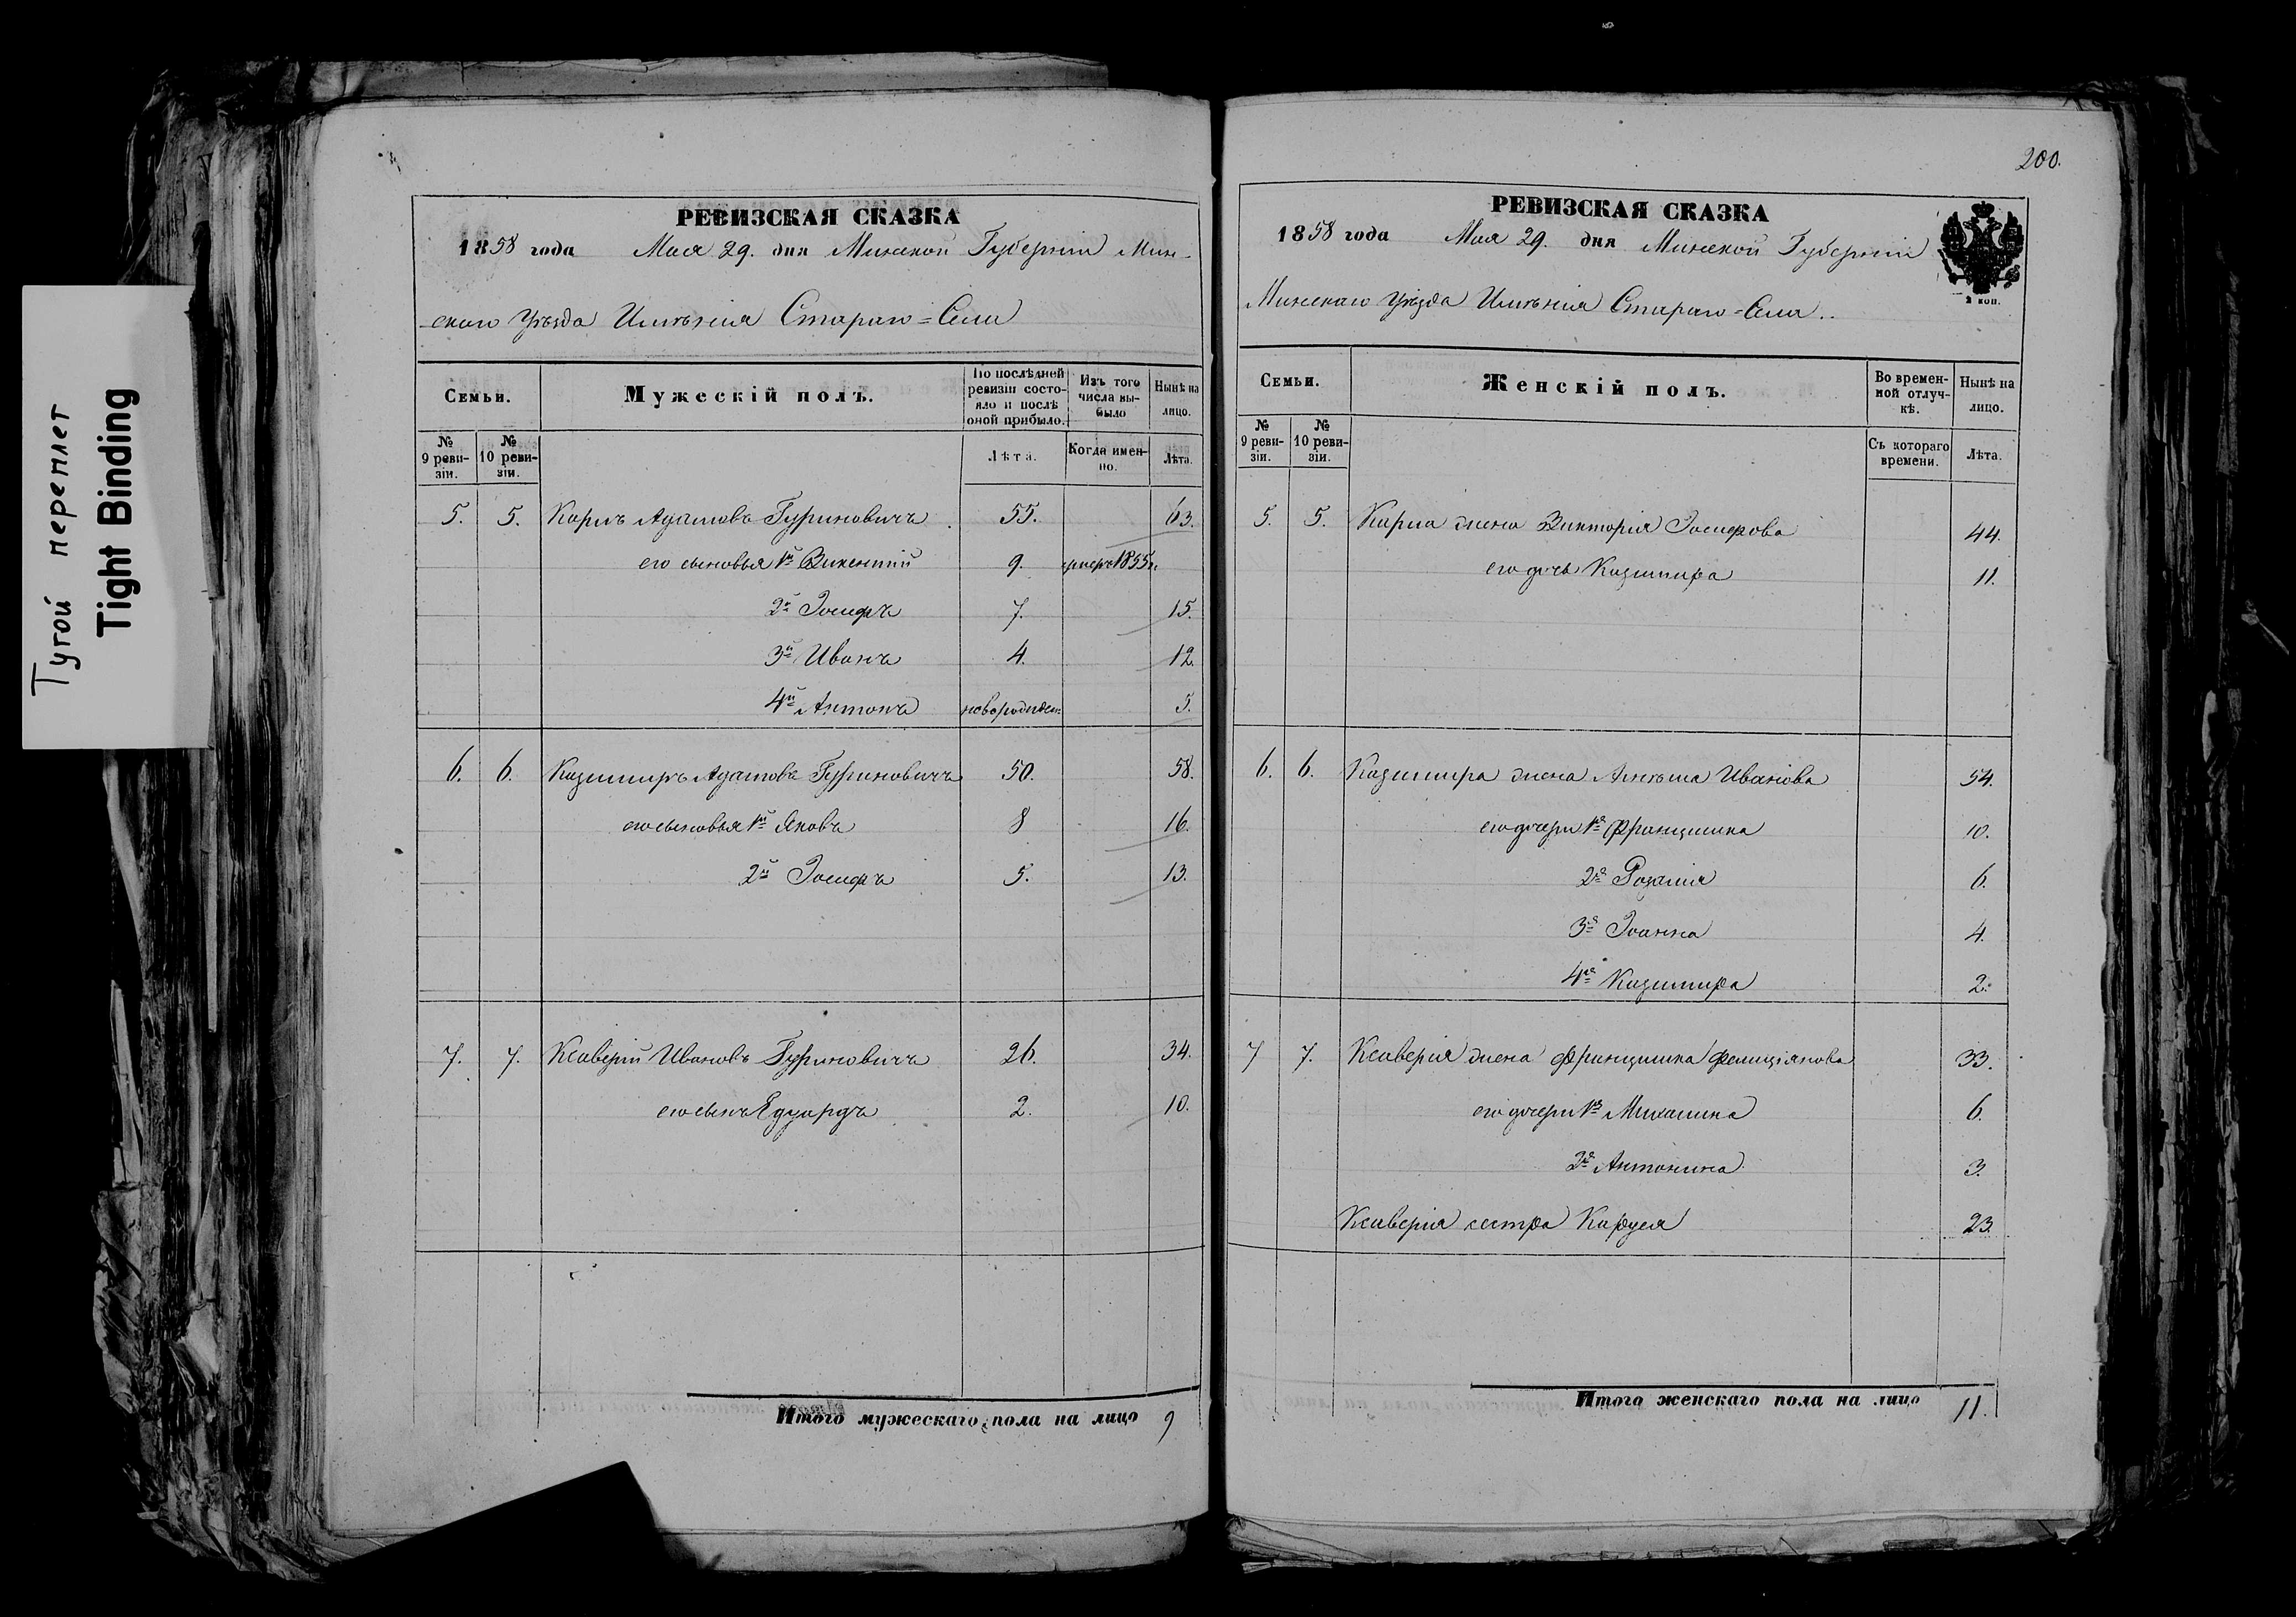 Тугой переплет
Tight Binding
РЕВИЗСКАЯ СКАЗКА
1858 года Мая 29. дня Минской Губерніи Мин-
скаго Уѣзда Имѣнія Стараго=Села
Семьи.
Мужескій полъ.
По послѣдней ревизіи состояло и послѣ оной прибыло.
Изъ того числа выбыло
Нынѣ на лицо.
№ 9 ревизіи.
№ 10 ревизіи.
Лѣта.
Когда именно.
Лѣта.
5. 5. Карлъ Адамовъ Гуриновичъ 55. 63.
его сыновья 1й Викентій 9. 1855
2й Іосифъ 7. 15.
3й Иванъ 4. 12.
4й Антонъ новорожден 5.
6. 6. Казимиръ Адамовъ Гуриновичъ 50. 58.
его сыновья 1й Яковъ 8 16.
2й Іосифъ 5. 13.
7. 7. Ксаверій Ивановъ Гуриновичъ 26. 34.
его сынъ Едуардъ 2. 10.
Итого мужескаго пола на лицо 9
200.
РЕВИЗСКАЯ СКАЗКА
1858 года Мая 29. дня Минской Губерніи
Минскаго Уѣзда Имѣнія Стараго=Села..
2 коп.
Семьи.
Женскій полъ.
Во временной отлучкѣ.
Нынѣ на лицо.
№ 9 ревизіи.
№ 10 ревизіи.
Съ котораго времени.
Лѣта.
5. 5. Карла жена Викторія Іосифова 44.
его дочь Казимира 11.
6. 6. Казимира жена Анѣля Иванова 54.
его дочери 1я Францишка 10.
2я Розалія 6.
3я Іоанна 4.
4я Казимира 2.
7 7. Ксаверія жена Францишка Фелиціянова 33.
его дочери 1я Михалина 6.
2я Антонина 3.
Ксаверія сестра 23.
Итого женскаго пола на лицо 11.